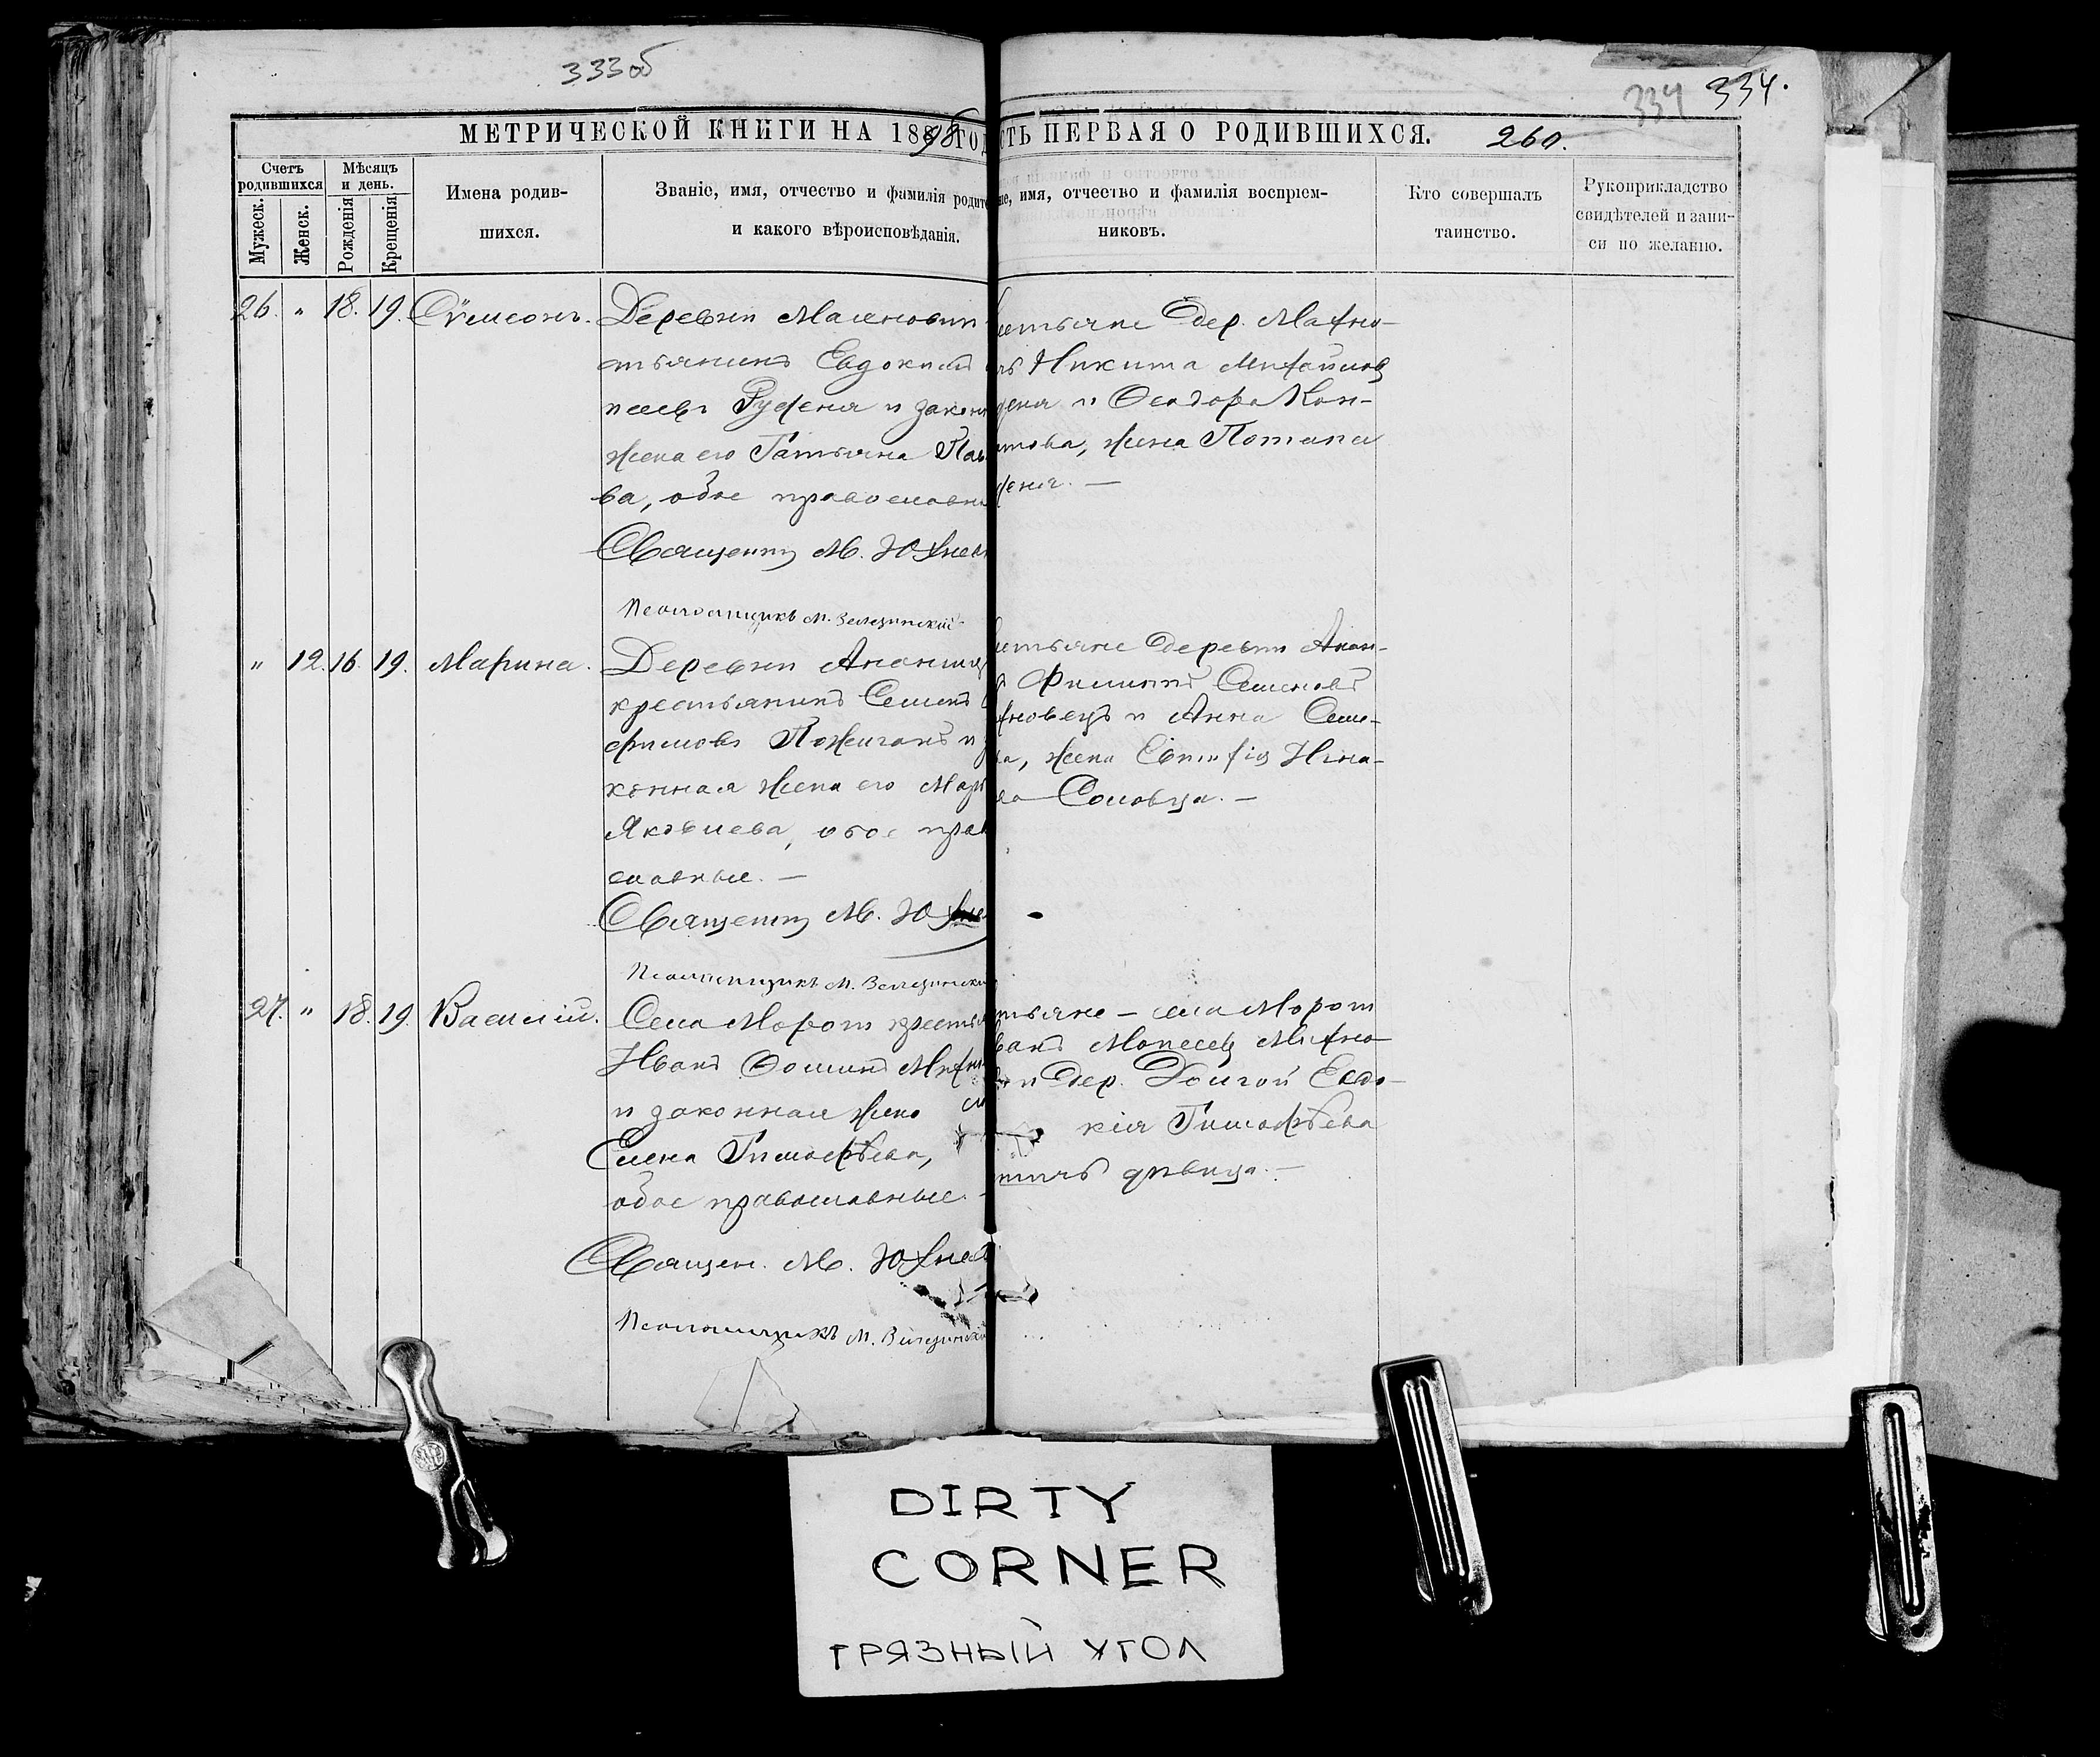 333об
334 334.
МЕТРИЧЕСКОЙ КНИГИ НА 1898 ГОД
СТЬ ПЕРВАЯ О РОДИВШИХСЯ. 260.
Счетъ родившихся
Мужеск.
Женск.
Мѣсяцъ и день.
Рожденія
Крещенія
Имена родив-
шихся.
Званіе, имя, отчество и фамилія родите
и какого вѣроисповѣданія.
ніе, имя, отчество и фамилія воспріем-
никовъ.
Кто совершалъ
таинство.
Рукоприкладство
свидѣтелей и запи-
си по желанію.
26. " 18. 19. Сѵмеонъ.
Деревни
стьянинъ Евдокимъ
и закон
жена его Татьяна Пав
ва, обое православн
Священник М. Юхнев
Псаломщикъ М. Зелезинскій
стьяне дер. Махно-
Никита Михайлов
и Ѳеодора Кон-
жена Потапа
" 12. 16. 19. Марина.
Деревни
крестьянинъ Семенъ
и за
конная жена его Мар
Яковлева, обое прав
славные. —
Священник М. Юхне
Псаломщикъ М. Зелезинскій
стьяне деревни Анан-
Филиппъ Семеновъ
и Анна Семе-
ва, жена Евтифія Игна-
Соловца. —
27. " 18. 19. Василій.
Села Морот крестья
Иванъ Ѳоминъ Михн
и законная жена
Елена Тимофѣева,
обое православные. -
Священ. М. Юхнев
Псаломщикъ М. Зелезинскій
стьяне — села Морот
ванъ Михно-
и дер. Долгой Евдо-
кія Тимофѣева
дѣвица. —
DIRTY
CORNER
ГРЯЗНЫЙ УГОЛ